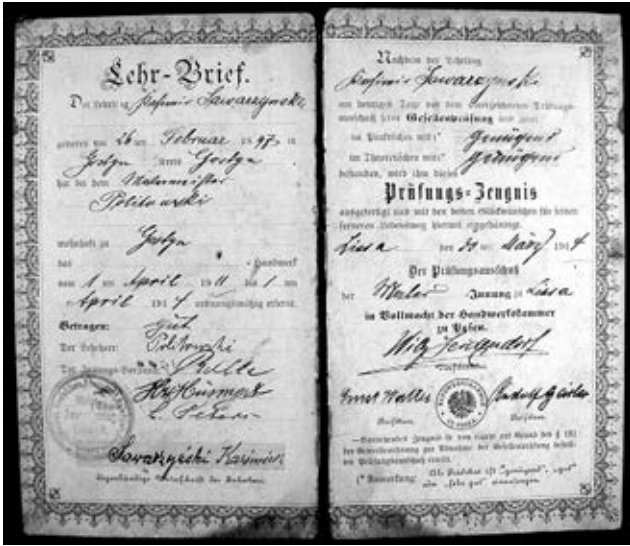 Lehr-Brief.
Der Lehrling Kasimir Sawarzynski
geboren am 26 ten Februar 1897 in
Gostyn Kreis Gostyn
hat bei dem Malermeister
Politowski
wohnhaft zu Gostyn
das Handwerk
vom 1 ten April 1911 bis 1 ten
April 1914 ordnungsmäßig erlernt.
Betragen: Gut
Der Lehrherr: Politowski
Der Innungs-Vorstand:
Sawarzyński Kazimierz
Eigenhändige Unterschrift des Inhabers.
Nachdem der Lehrling
Kasimir Sawarzynski
am heutigen Tage vor dem unterzeichneten Prüfungs-
ausschuß seine Gesellenprüfung und zwar
im Praktischen mit:* Genügend
im Theoretischen mit:* genügend
bestanden, wird ihm dieses
Prüfungs-Zeugnis
ausgefertigt und mit den besten Glückwünschen für seinen
ferneren Lebensweg hiermit eingehändigt.
Lissa den 30 ten März 1914
Der Prüfungsausschuß
der Maler -Innung zu Lissa
in Vollmacht der Handwerkskammer
zu Posen.
Vorsitzender.
Ernst Walter Rudolf Geisler
Beisitzer. Beisitzer.
Zeugnis ist auf Grund des § 131
der Gewerbeordnung zur Abnahme der Gesellenprüfung
Prüfungsausschuß erteilt.
(* Anmerkung: Als Prädikat ist "genügend", "gut"
oder "sehr gut" einzutragen.